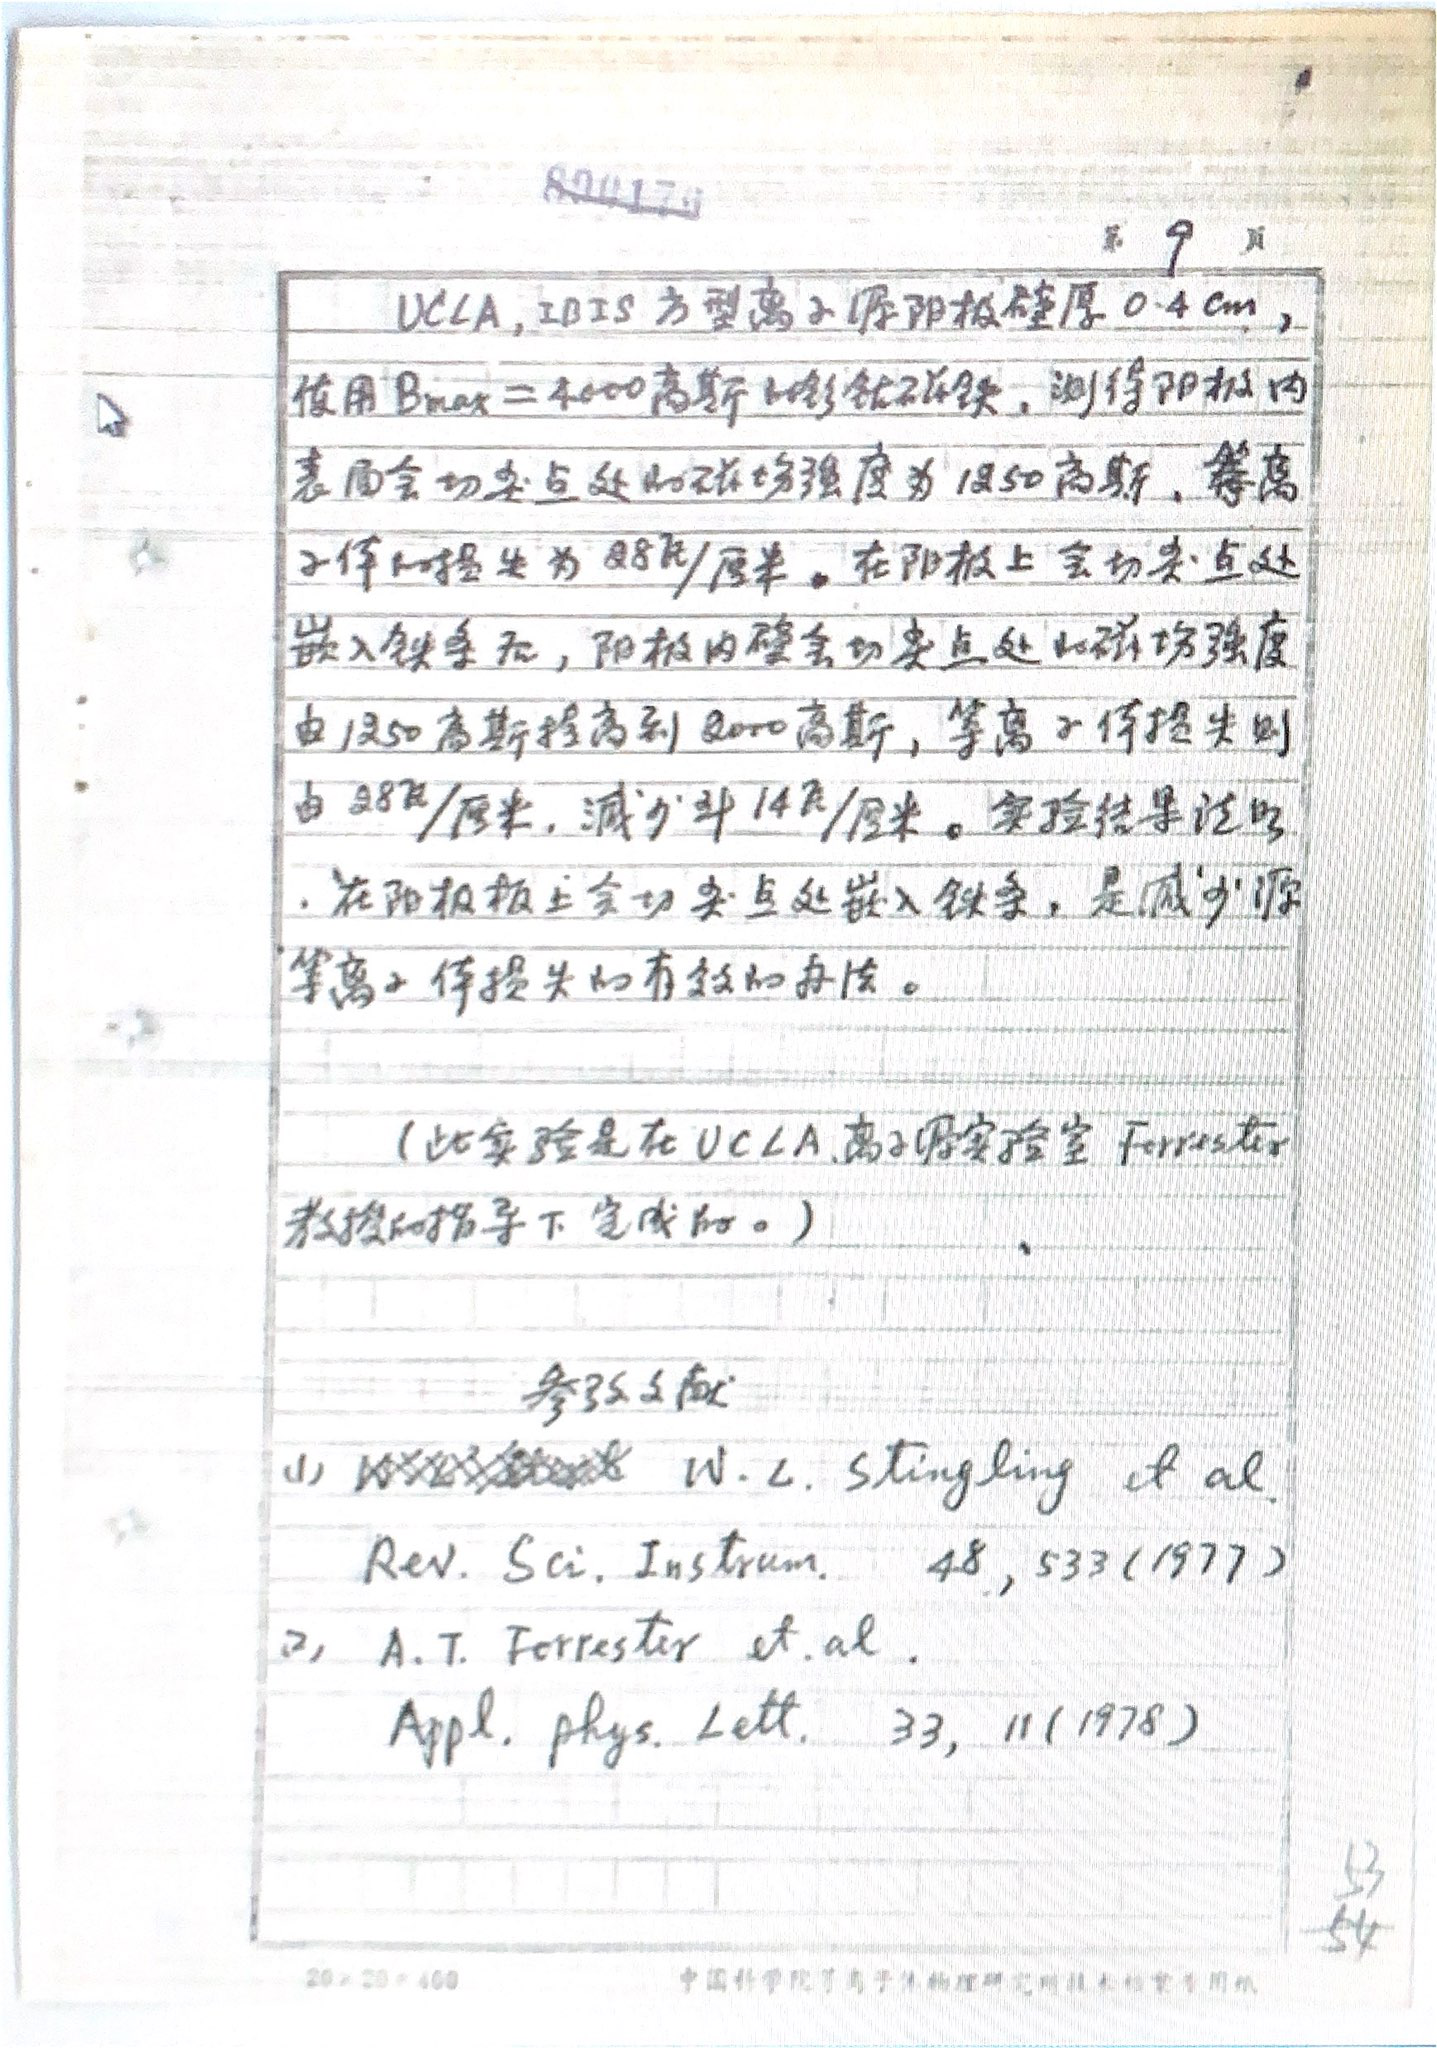 第 9 页
UCLA, IBIS 方型离子源阳极壁厚 0.4 cm,
使用 Bmax = 4000高斯的钐钴磁铁，测得阳极内
表面会切尖点处的磁场强度为1250高斯，等离
子体的损失为28瓦/厘米。在阳极上会切尖点处
嵌入铁条后，阳极内壁会切尖点处的磁场强度
由1250高斯提高到2000高斯，等离子体损失则
由28瓦/厘米，减少到14瓦/厘米。实验结果说明
，在阳极板上会切尖点处嵌入铁条，是减少源
等离子体损失的有效的办法。
(此实验是在UCLA离子源实验室 Forrester
教授的指导下完成的。)
参考文献
(1) W.L. Stingling et al.
Rev. Sci. Instrum. 48, 533 (1977)
(2) A.T. Forrester et.al.
Appl. phys. Lett. 33, 11 (1978)
53
54
20×20=400 中国科学院等离子体物理研究所技术档案专用纸